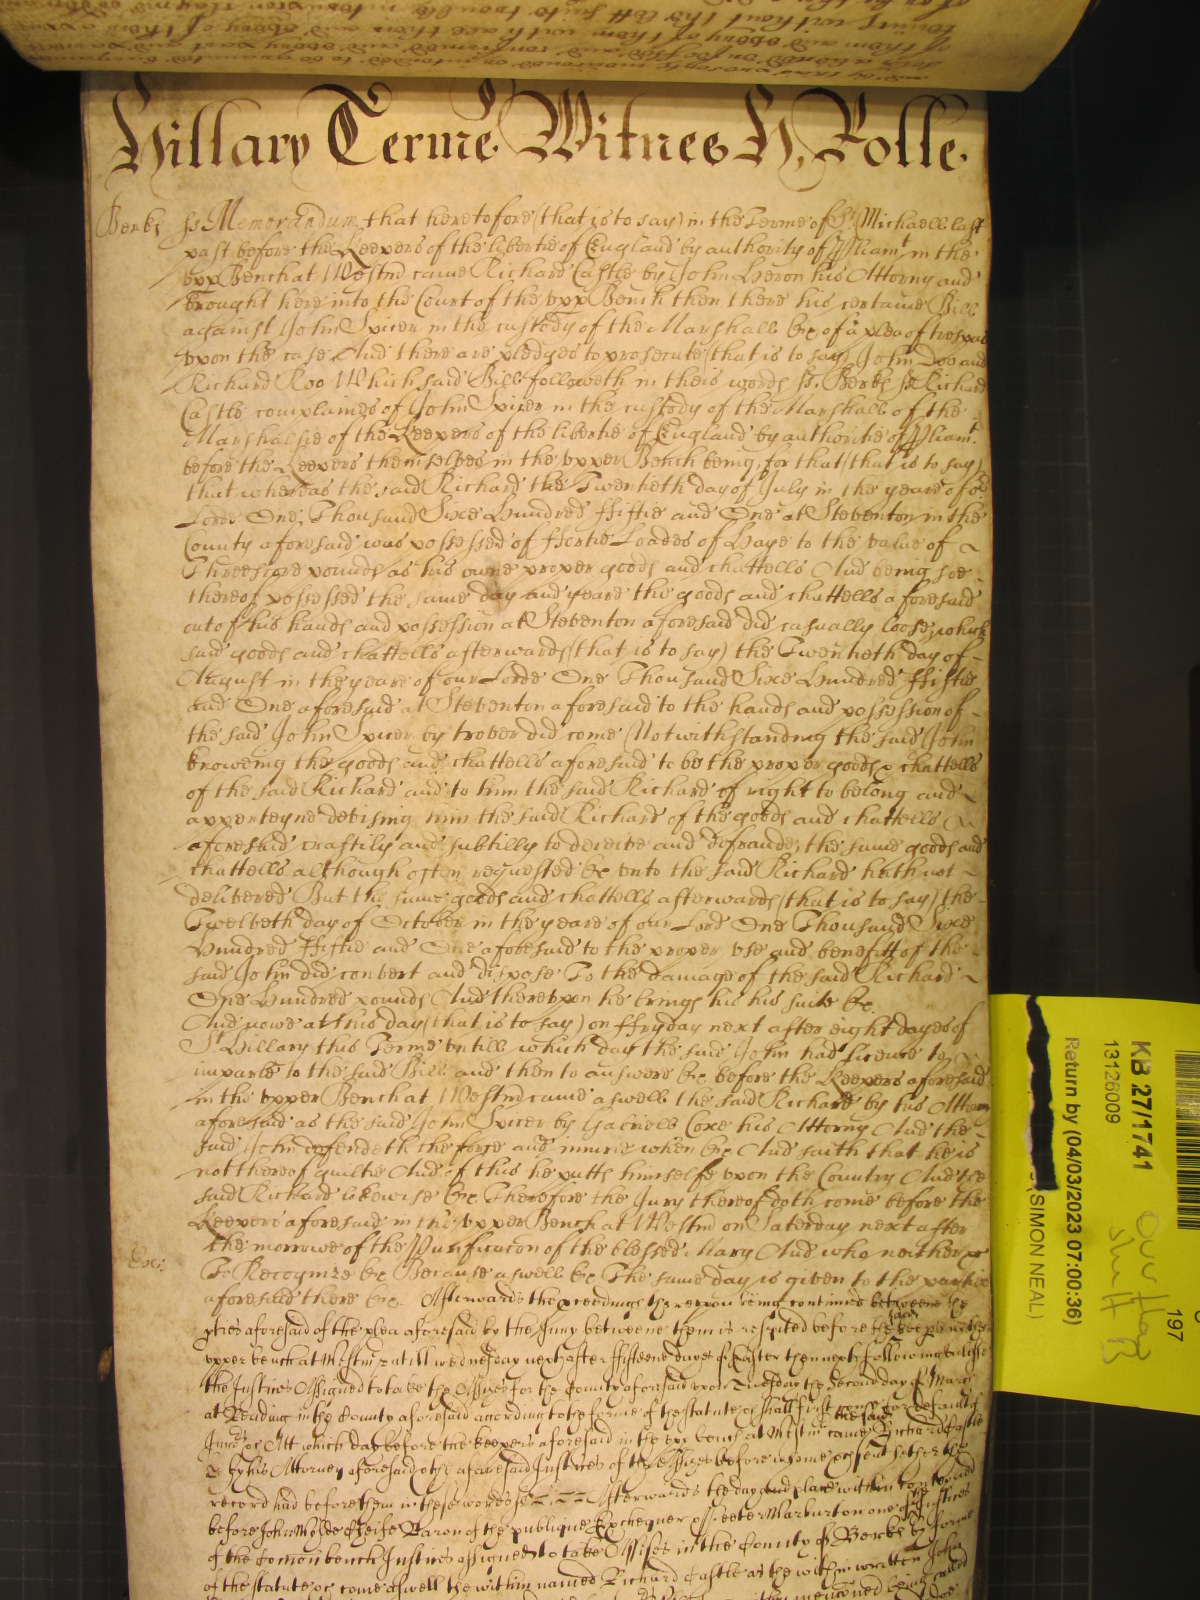 Hillary Terme Witnes H. Rolle.
Berks ss Memorandum that heretofore (that is to say) in the Terme of St Michaell last
past before the Keepers of the libertie of England by authority of Pliamt in the
vpp Bench at Westm came Richard Castle by John Heron his Attorny and
brought here into the Court of the vpp Bench then there his certaine Bill
against John Spicer in the custody of the Marshall &c of a plea of trespas
vpon the case And there are pledges to prosecute (that is to say) John Doo and
Richard Roo Which said Bill followeth in theis words ss. Berks ss Richard
Castle complaines of John Spicer in the custody of the Marshall of the
Marshalsie of the Keepers of the libertie of England by authoritie of Pliamt.
before the Keepers themselves in the vpper Bench being, for that (that is to say)
that whereas the said Richard the Twentieth day of July in the yeare of or
Lorde One Thousand Sixe Hundred ffiftie and One at Steventon in the
County aforesaid was possessed of ffortie Loades of Haye to the value of
Threescore pounds as his owne proper goods and chattells And being soe
thereof possessed the same day and yeare the goods and chattells aforesaid
out of his hands and possession at Steventon aforesaid did casually loose, which
said goods and chattells afterwards (that is to say) the Twentieth day of
August in the yeare of our Lorde One Thousand Sixe Hundred ffiftie
and One aforesaid at Steventon aforesaid to the hands and possession of
the said John Spicer by trover did come Notwithstanding the said John
knoweing the goods and chattells aforesaid to be the proper goods & chattells
of the said Richard and to him the said Richard of right to belong and
apperteyne devising him the said Richard of the goods and chattells
aforesaid craftily and subtilly to deceive and defraude, the same goods and
chattells although often requested &c vnto the said Richard hath not
delivered But the same goods and chattells afterwards (that is to say) the
Twelveth day of October in the yeare of our Lord One Thousand Sixe
Hundred ffiftie and One aforesaid to the proper vse and benefitt of the
said John did convert and dispose To the damage of the said Richard
One Hundred pounds And therevpon he brings his his suite &c.
And nowe at this day (that is to say) on ffryday next after eight dayes of
St. Hillary this Terme vntill which day the said John had licence to
imparle to the said Bill and then to answere &c before the Keepers aforesaid
in the vpper Bench at Westm came aswell the said Richard by his Attorny
aforesaid as the said John Spicer by Gabriell Coxe his Attorny And the
said John defendeth the force and iniurie when &c And saith that he is
not thereof guiltie And of this he putts himselfe vpon the Country And the
said Richard likewise &c Therefore the Jury thereof doth come before the
Keepers aforesaid in the vpper Bench at Westm on Saturday next after
the morrowe of the Purificacon of the blessed Mary And who neither &c
To Recognize &c Because aswell &c The same day is given to the parties
aforesaid there &c. Afterwards the pceedings therevpon being continued betweene the
pties aforesaid of the plea aforesaid by the Jury betweene them is respited before the said keeps in the
vpper bench at Westm vntill wednesday next after ffifteene dayes of Easter then next following vnlesse
the Justices Assigned to take the Assizes for the County aforesaid vpon Tuesday the second day of March
at Reading in the County aforesaid according to the forme of the statute &c shall first come for default of
Jurors &c Att which day before the keepers aforesaid in the vpp bench at Westm came the said Richard Castle
by his Attorney aforesaid & the aforesaid Justices of the Assizes before whome &c sent hither their
record had before them in these words ss Afterwards the day and place within conteyned
before John Wylde Cheife Baron of the publique Exchequer & Peeter Warburton one of the Justices
of the Comon bench Justices assigned to take Assizes in the County of Berks by forme
of the statute &c come aswell the within named Richard Castle as the within written John
KB 27/1741
13126009
Return by (04/03/2023 07:00:36)
(SIMON NEAL)
197